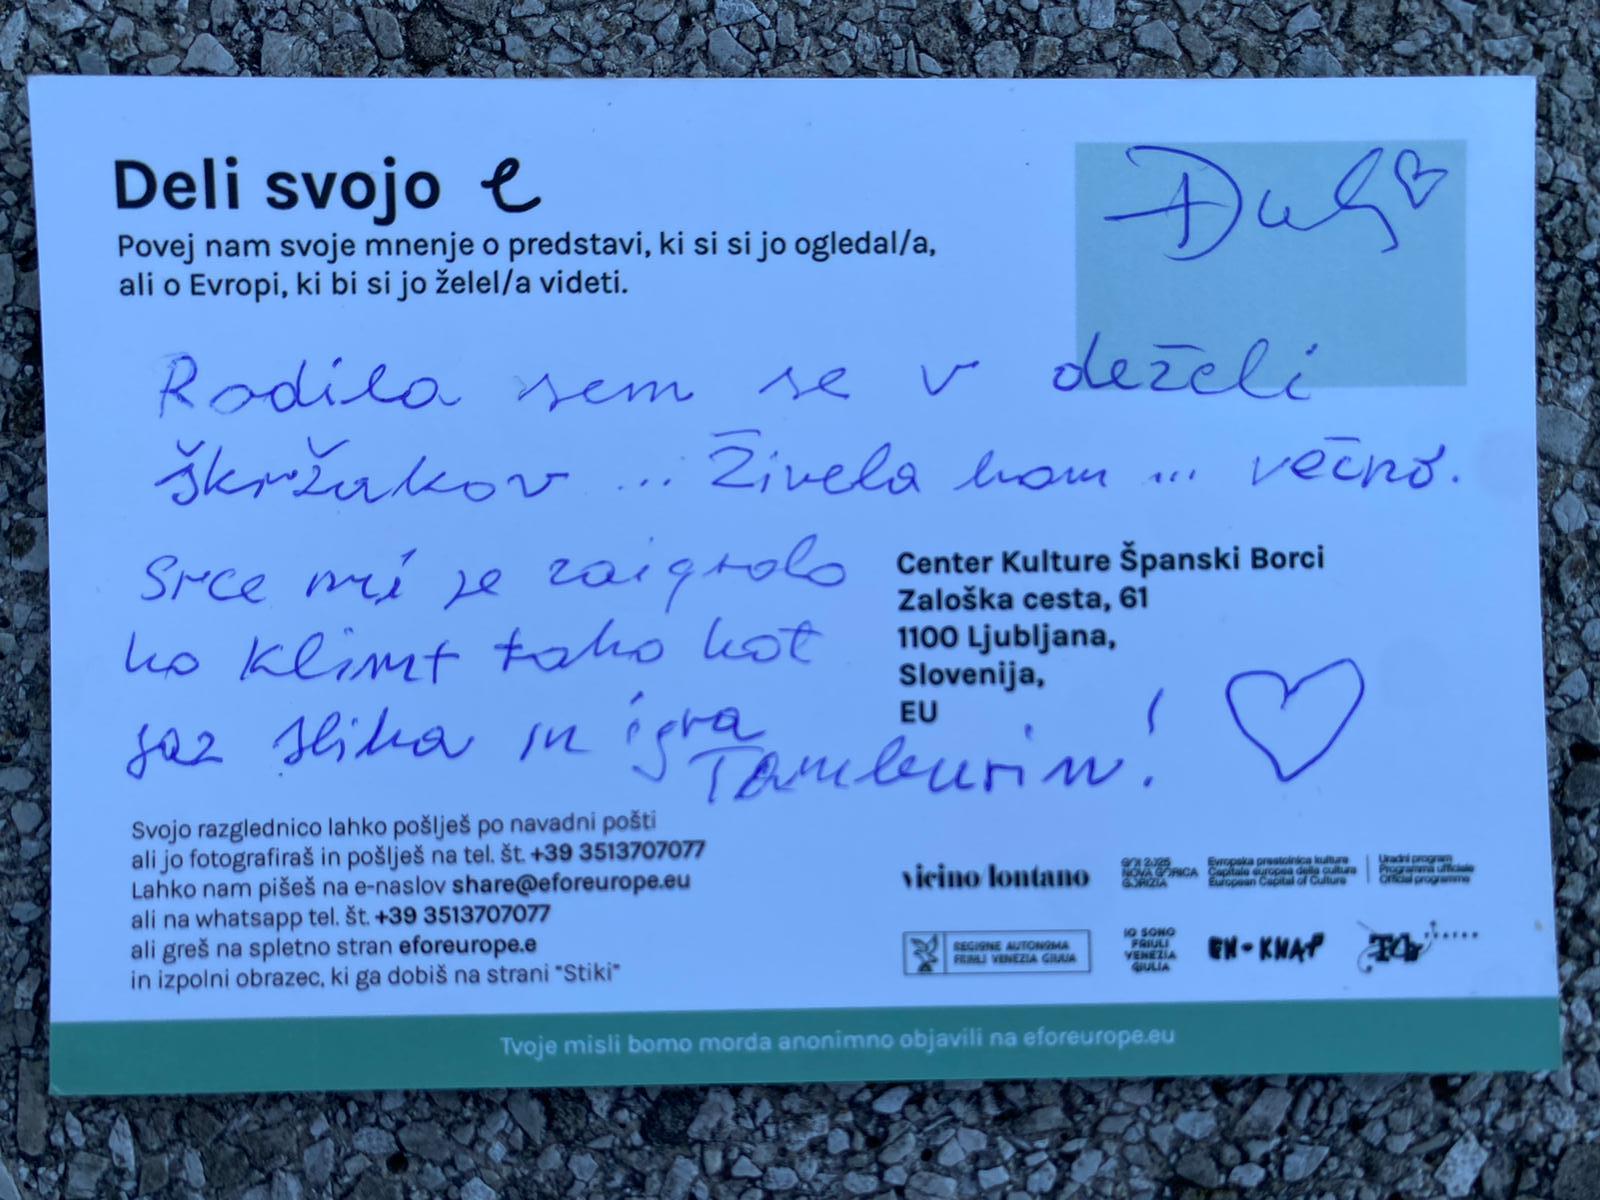 Deli svojo e
Povej nam svoje mnenje o predstavi, ki si si jo ogledal/a,
ali o Evropi, ki bi si jo želel/a videti.
Rodila sem se v deželi
škržakov ... Živela bom ... večno.
Srce mi je zaigralo
ko Klimt tako kot
jaz slika in igra
Tamburin!
Center Kulture Španski Borci
Zaloška cesta, 61
1100 Ljubljana,
Slovenija,
EU
Svojo razglednico lahko pošlješ po navadni pošti
ali jo fotografiraš in pošlješ na tel. št. +39 3513707077
Lahko nam pišeš na e-naslov share@eforeurope.eu
ali na whatsapp tel. št. +39 3513707077
ali greš na spletno stran eforeurope.e
in izpolni obrazec, ki ga dobiš na strani "Stiki"
vicino/lontano
GO! 2025
NOVA GORICA
GORIZIA
Evropska prestolnica kulture
Capitale europea della cultura
European Capital of Culture
Uradni program
Programma ufficiale
Official programme
REGIONE AUTONOMA
FRIULI VENEZIA GIULIA
IO SONO
FRIULI
VENEZIA
GIULIA
EN-KNAP
Tvoje misli bomo morda anonimno objavili na eforeurope.eu